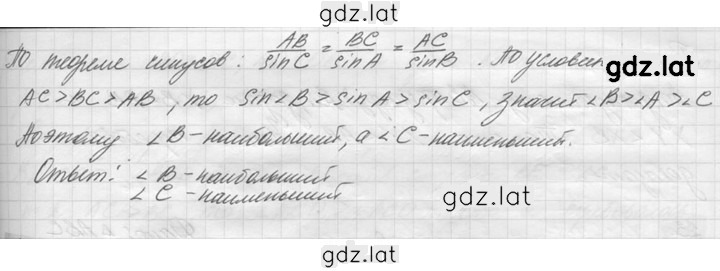 gdz.lat
По теореме синусов: AB/sinC = BC/sinA = AC/sinB. По услови
gdz.lat
AC>BC>AB, то sin∠B>sinA>sinC, значит ∠B>∠A>∠C
Поэтому ∠B-наибольший, а ∠C-наименьший.
Ответ: ∠B-наибольший
∠C-наименьший
gdz.lat
gdz.lat